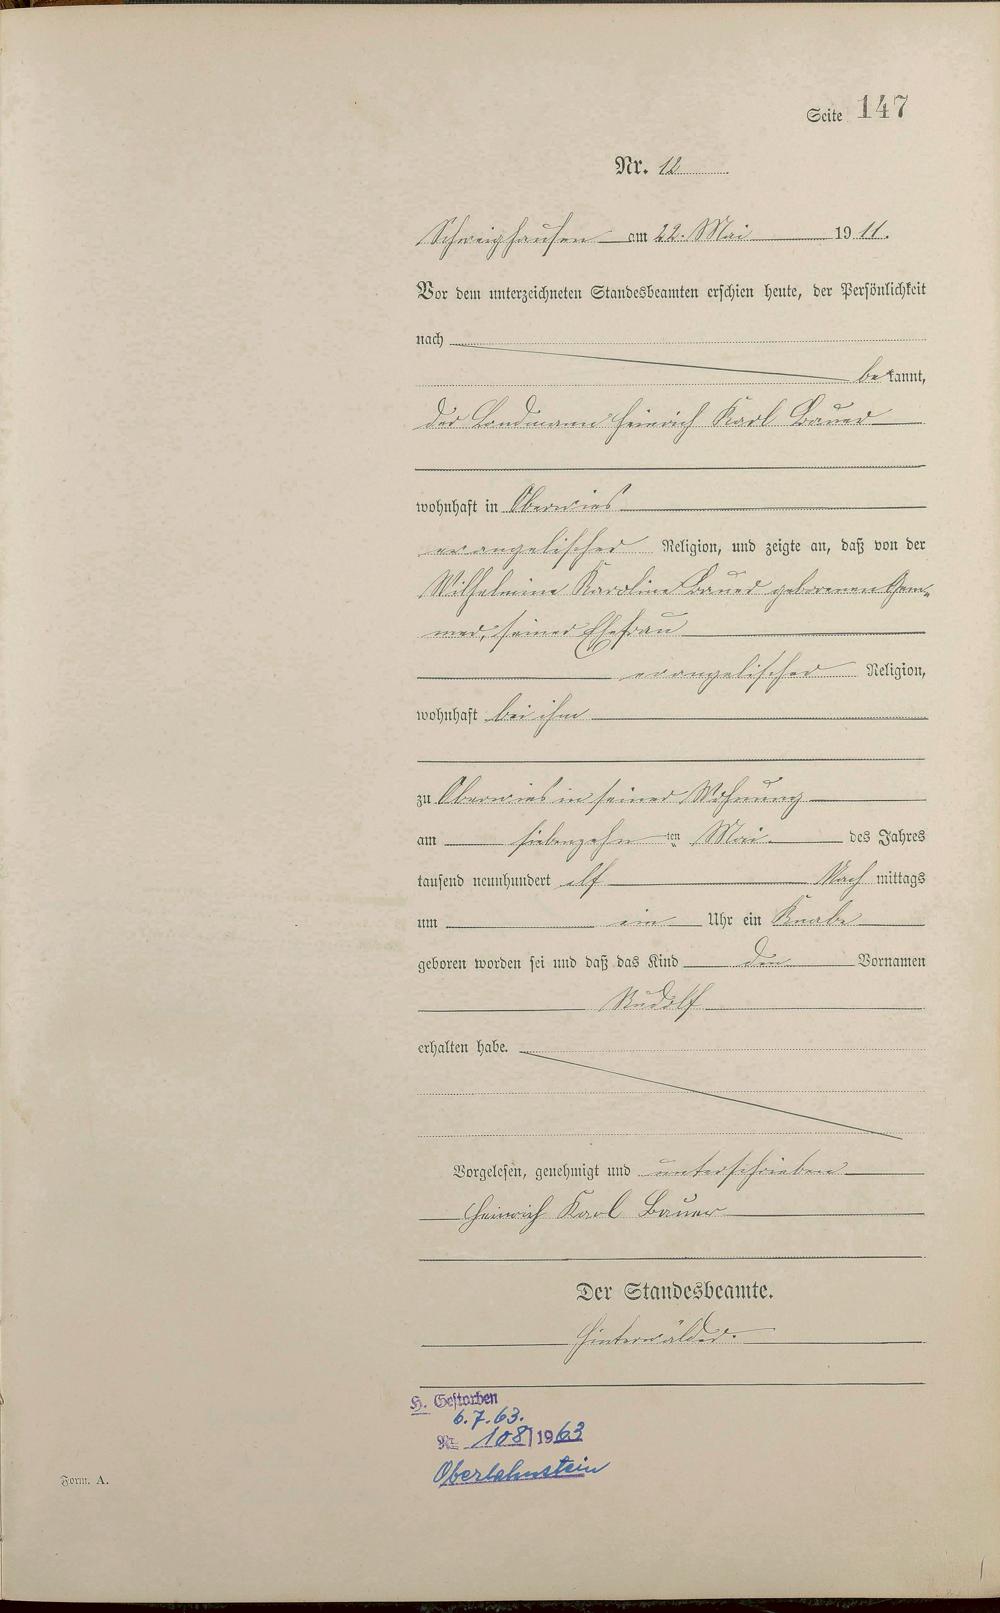 Seite 147
Nr. 12
Schweighausen am 22. Mai 1911.
Vor dem unterzeichneten Standesbeamten erschien heute, der Persönlichkeit
nach
bekannt,
der Landmann Heinrich Karl Bauer
wohnhaft in Oberwies
evangelischer Religion, und zeigte an, daß von der
Wilhelmine Karoline Bauer geborenen Gem-
mer, seiner Ehefrau
evangelischer Religion,
wohnhaft bei ihm
zu Oberwies in seiner Wohnung
am siebenzehnten Mai des Jahres
tausend neunhundert elf Nachmittags
um ein Uhr ein Knabe
geboren worden sei und daß das Kind den Vornamen
Rudolf
erhalten habe.
Vorgelesen, genehmigt und unterschrieben
Heinrich Karl Bauer
Der Standesbeamte.
Hinterwälder.
H. Gestorben
6.7.63.
Nr. 108/1963
Oberlahnstein
Form. A.